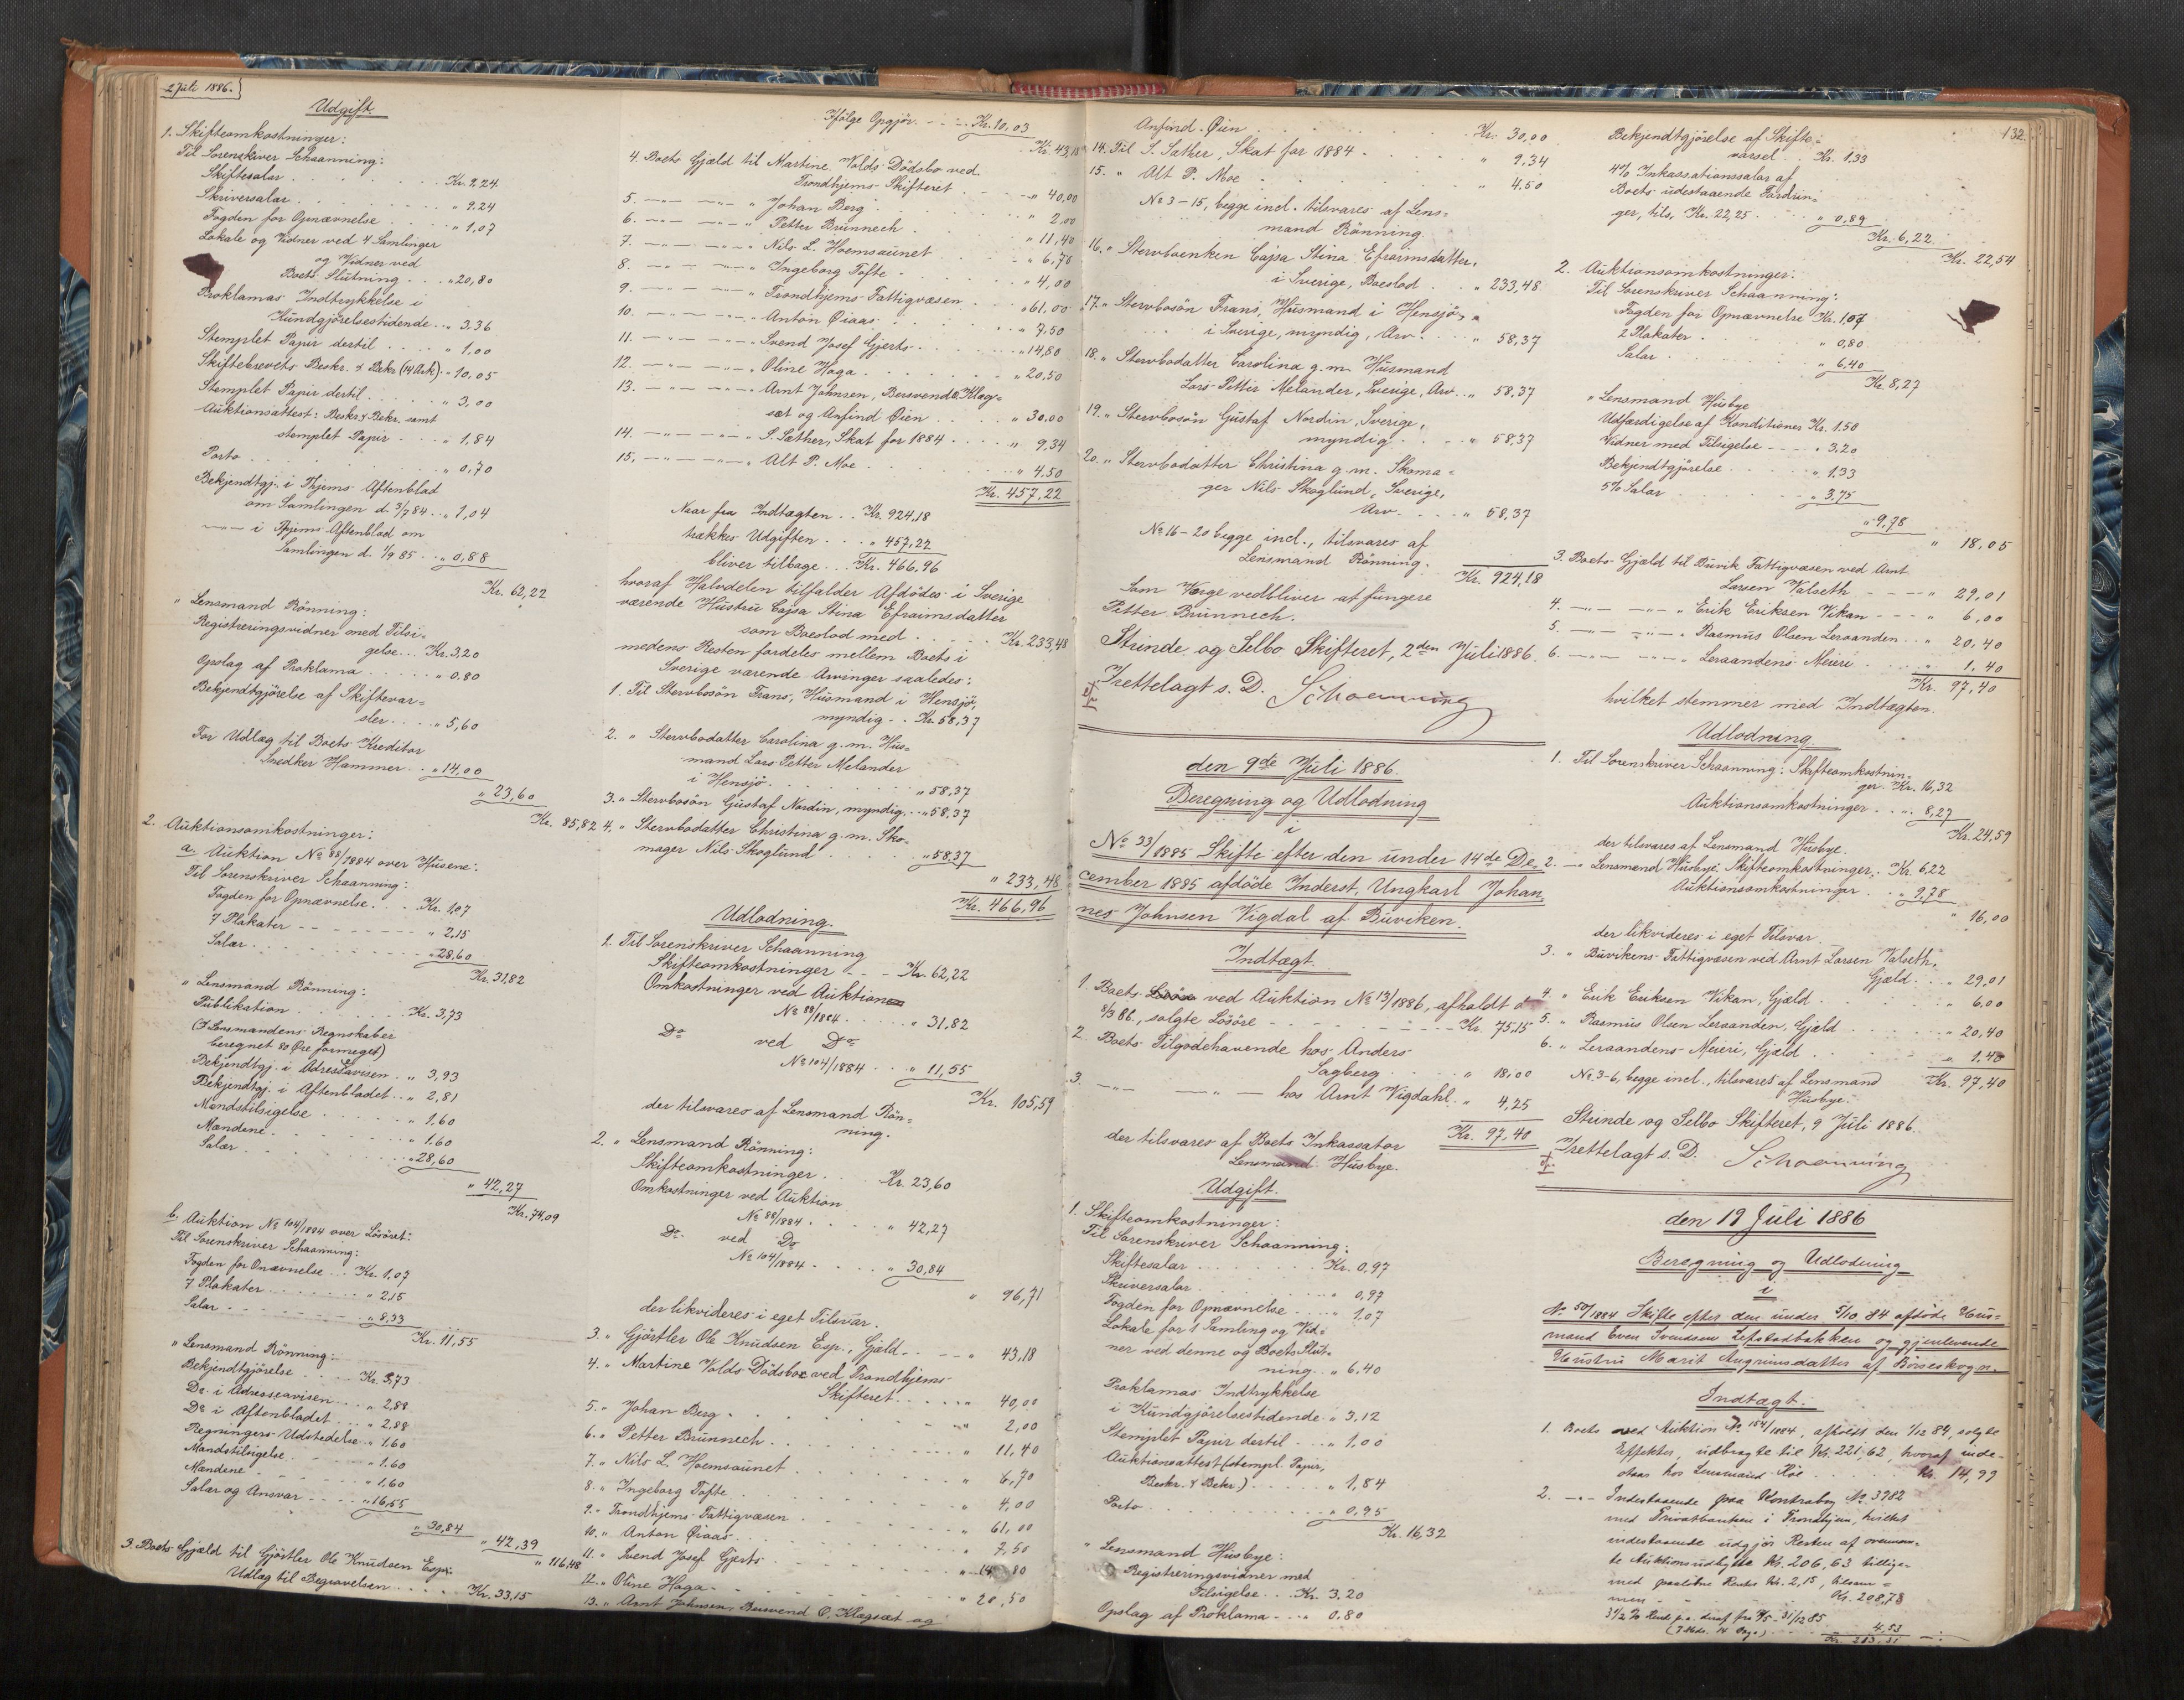 2 Juli 1886.
Udgift.
1. Skifteomkostninger:
Til Sorenskriver Schaanning:
Skiftesalar . . . Kr. 9.24
Skriversalar . . . " 9.24
Fogden for Opnævnelse . . . " 1,07
Lokale og Vidner ved 4 Samlinger
og Vidner ved
Boets Slutning . . . " 20,80
Proklamas Indtrykkelse i
Kundgjörelsestidende . . " 3.36
Stemplet Papir dertil . . . " 1,00
Skiftebrevets Beskr. & Bekr. (14 Ark) . " 10,05
Stemplet Papir dertil . . . " 3,00
Auktionsattest: Beskr. & Bekr. samt
stemplet Papir . . . " 1,84
Porto . . . " 0,70
Bekjendtgj. i Thjems Aftenblad
om Samlingen d. 3/7 84 . . " 1,04
— " — i Thjems Aftenblad om
Samlingen d. 1/9 85 . . " 0,88
Kr. 62,22
" Lensmand Rönning:
Registreringsvidner med Tilsi-
gelse . . . Kr. 3,20
Opslag af Proklama . . . " 0,80
Bekjendtgjörelse af Skiftevar-
sler . . . " 5,60
For Udlæg til Boets Kreditor
Snedker Hammer . . " 14,00
" 23,60
Kr. 85,82
2. Auktionsomkostninger:
a. Auktion No 88/1884 over Husene:
Til Sorenskriver Schaanning:
Fogden for Opnævnelse . . . Kr. 1,07
7 Plakater . . . " 2,15
Salær . . . " 28,60
Kr. 31,82
" Lensmand Rönning:
Publikation . . . Kr. 3,73
(I Lensmandens Regnskaber
beregnet 80 Øre formeget)
Bekjendtgj. i Adresseavisen . . " 3,93
Bekjendtgj. i Aftenbladet . . " 2,81
Mandstilsigelse . . . " 1.60
Mændene . . . " 1.60
Salær . . . " 28,60
" 42,27
Kr. 74,09
b. Auktion No 104/1884 over Lösöret:
Til Sorenskriver Schaanning:
Fogden for Opnævnelse . . Kr. 1,07
7 Plakater . . . " 2,15
Salar . . . " 8,33
Kr. 11,55
" Lensmand Rönning:
Bekjendtgjörelse . . . Kr. 3,73
Do i Adresseavisen . . " 2,88
Do i Aftenbladet . . . " 2,88
Regningers Udstedelse . . " 1.60
Mandstilsigelse . . . " 1.60
Mændene . . . " 1,60
Salar og Ansvar . . . " 16,55
" 30,84
" 42,39
" 116,48
3. Boets Gjæld til Gjörtler Ole Knudsen Esp:
Udlæg til Begravelsen . . . Kr. 33,15
Ifölge Opgjör . . . Kr. 10,03
Kr. 43,18
4. Boets Gjæld til Martine Volds Dödsbo ved
Trondhjems Skifteret . . . " 40,00
5. — " — — " — " Johan Berg . . . " 2,00
6. — " — — " — " Petter Brünnech . . . " 11,40
7. — " — — " — " Nils L. Hoemsaunet . . . " 6,70
8. — " — — " — " Ingeborg Tofte . . . " 4,00
9. — " — — " — " Trondhjems Fattigvæsen . . . " 61,00
10. — " — — " — " Anton Öiaas . . . " 7.50
11. — " — — " — " Svend Josef Gjerts . . . " 14,80
12. — " — — " — " Oline Haga . . . " 20,50
13. — " — — " — " Arnt Johnsen, Bersvend O. Klæg-
sæt og Anfind Öien . . . " 30.00
14. — " — — " — " S. Sæther, Skat for 1884 . . . " 9,34
15. — " — — " — " Alt P. Moe . . . " 4.50
Kr. 457,22
Naar fra Indtægten . . Kr. 924,18
trækkes Udgiften . . . " 457,22
bliver tilbage . . . Kr. 466,96
hvoraf Halvdelen tilfalder Afdödes i Sverige
værende Hustru Cajsa Stina Efraimsdatter
som Boeslod med . . . Kr. 233,48
medens Resten fordeles mellem Boets i
Sverige værende Arvinger saaledes:
1. Til Stervbosön Frans, Husmand i Hensjö,
myndig . . Kr. 58,37
2. " Stervbodatter Carolina g. m. Hus-
mand Lars Petter Melander
i Hensjö . . . " 58,37
3. " Stervbosön Gustaf Nordin, myndig, . . " 58,37
4. " Stervbodatter Christina g. m. Sko-
mager Nils Skoglund . . . " 58,37
" 233,48
Kr. 466,96
Udlodning.
1. Til Sorenskriver Schaanning
Skifteomkostninger . . . Kr. 62,22
Omkostninger ved Auktion
No 88/1884 . . . " 31,82
Do ved Do
No 104/1884 . . . " 11,55
Kr. 105,59
der tilsvares af Lensmand Rön-
ning.
2. " Lensmand Rönning:
Skifteomkostninger . . . Kr. 23,60
Omkostninger ved Auktion
No 88/1884 . . . " 42,27
Do ved Do
No 104/1884 . . . " 30,84
" 96,71
der likvideres i eget Tilsvar.
3. " Gjörtler Ole Knudsen Esp., Gjæld . . . " 43,18
4. " Martine Volds Dödsbo ved Trondhjems
Skifteret . . . " 40,00
5. " Johan Berg . . . " 2,00
6. " Petter Brünnech . . . " 11,40
7. " Nils L. Hoemsaunet . . . " 6,70
8. " Ingeborg Tofte . . . " 4,00
9. " Trondhjems Fattigvæsen . . . " 61,00
10. " Anton Öiaas . . . " 7,50
11. " Svend Josef Gjerts . . . " 14,80
12. " Oline Haga . . . " 20,50
13. " Arnt Johnsen, Bersvend O. Klægsæt og
132.
Anfind Öien . . . Kr. 30,00
14. Til S. Sather, Skat for 1884 . . . " 9,34
15. " Alt P. Moe . . . " 4.50
No 3-15, begge incl. tilsvares af Lens-
mand Rönning.
16. " Stervboenken Cajsa Stina Efraimsdatter,
i Sverige, Boeslod . . " 233,48
17. " Stervbosön Frans, Husmand i Hensjö,
i Sverige, myndig, Arv . . . " 58,37
18. " Stervbodatter Carolina g. m. Husmand
Lars Petter Melander, Sverige, Arv . . " 58,37
19. " Stervbosön Gustaf Nordin, Sverige,
myndig . . . " 58,37
20. " Stervbodatter Christina g. m. Skoma-
ger Nils Skoglund, Sverige,
Arv . . . " 58,37
No 16-20 begge incl., tilsvares af
Lensmand Rönning.
Kr. 924,18
Som Værge vedbliver at fungere
Petter Brünnech.
Strinde og Selbo Skifteret, 2den Juli 1886.
Irettelagt s. D. Schaanning
den 9de Juli 1886.
Beregning og Udlodning
i
No 33/1885 Skifte efter den under 14de De-
cember 1885 afdöde Inderst, Ungkarl Johan-
nes Johnsen Vigdal af Buviken.
Indtægt.
1. Boets ved Auktion No 13/1886, afholdt d.
3/3 86, solgte Lösöre . . . Kr. 75,15
2. Boets Tilgodehavende hos Anders
Sagberg . . . " 18,00
3. — " — — " — hos Arnt Vigdahl . " 4,25
Kr. 97,40
der tilsvares af Boets Inkassator
Lensmand Husbye.
Udgift.
1. Skifteomkostninger:
Til Sorenskriver Schaanning:
Skiftesalar . . . Kr. 0,97
Skriversalar . . . " 0,97
Fogden for Opnævnelse . . . " 1,07
Lokale for 1 Samling og Vid-
ner ved denne og Boets Slut-
ning . . " 6,40
Proklamas Indtrykkelse
i Kundgjörelsestidende . " 3,12
Stemplet Papir dertil . . . " 1,00
Auktionsattest (stempl. Papir,
Beskr. & Bekr.) . . . " 1,84
Porto . . . " 0,95
Kr. 16,32
" Lensmand Husbye:
Registreringsvidner med
Tilsigelse . . . Kr. 3.20
Opslag af Proklama . . . " 0.80
Bekjendtgjörelse af Skifte-
varsel . . Kr. 1,33
4% Inkassationssalar af
Boets udestaaende Fordrin-
ger, tils. Kr. 22,25 . . . " 0,89
Kr. 6,22
Kr. 22,54
2. Auktionsomkostninger:
Til Sorenskriver Schaanning:
Fogden for Opnævnelse Kr. 1,07
2 Plakater . . . " 0,80
Salar . . . " 6,40
Kr. 8,27
" Lensmand Husbye
Udfærdigelse af Konditioner Kr. 1.50
Vidner med Tilsigelse . . . " 3,20
Bekjendtgjörelse . . . " 1,33
5% Salar . . . " 3,75
" 9,78
" 18,05
3. Boets Gjæld til Buvik Fattigvæsen ved Arnt
Larsen Valseth . . . " 29,01
4. — " — — " — " Erik Eriksen Vikan . . . " 6,00
5. — " — — " — " Rasmus Olsen Leraanden . . " 20,40
6. — " — — " — " Leraandens Meieri . . . " 1,40
Kr. 97,40
hvilket stemmer med Indtægten.
Udlodning.
1. Til Sorenskriver Schaanning: Skifteomkostnin-
ger. Kr. 16,32
Auktionsomkostninger . . . " 8,27
Kr. 24,59
der tilsvares af Lensmand Husbye.
2. " Lensmand Husbye: Skifteomkostninger, . Kr. 6.22
Auktionsomkostninger . . . " 9,78
" 16,00
der likvideres i eget Tilsvar.
3. " Buvikens Fattigvæsen ved Arnt Larsen Valseth,
Gjæld . . . " 29,01
4. " Erik Eriksen Vikan, Gjæld . . . " 6.00
5. " Rasmus Olsen Leraanden, Gjæld . . . " 20,40
6. " Leraandens Meieri, Gjæld . . . " 1,40
No 3-6, begge incl., tilsvares af Lensmand
Husbye.
Kr. 97,40
Strinde og Selbo Skifteret, 9 Juli 1886.
Irettelagt s. D. Schaanning
den 19 Juli 1886
Beregning og Udlodning
i
No 50/1884 Skifte efter den under 5/10 84 afdöde Hus-
mand Even Svendsen og gjenlevende
Hustru Marit af Börseskogn.
Indtægt.
1. Boets ved Auktion No 104/1884, afholdt den 1/12 84, solgte
Effekter, udbragte til Kr. 221,62, hvoraf inde-
staar hos Lensmand Röe . . . Kr. 14,99
2. — " — Indestaaende paa Kontrabog No 3982
med Privatbanken i Trondhjem, hvilket
indestaaende udgjör Resten af ovennævn-
te Auktionsudbytte Kr. 206,63 tillige-
med paalöbne Renter Kr. 2,15, tilsam-
men . . . Kr. 208,78
3 1/2 % Rente p. a. deraf fra - 31/12 85
(7 Mdr. 14 Dage) . . . 4,53
Kr. 213,31